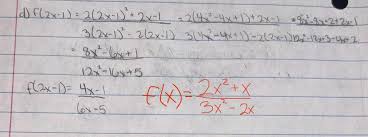 d) f(2x-1) = 2(2x-1)² + 2x-1 = 2(4x²-4x+1)+2x-1 = 8x²-8x+2+2x-1
3(2x-1)² - 2(2x-1) 3(4x²-4x+1)-2(2x-1) 12x²-12x+3-4x+2
= 8x²-6x+1
12x²-16x+5
f(2x-1) = 4x-1
6x-5
f(x) = 2x²+x
3x²-2x